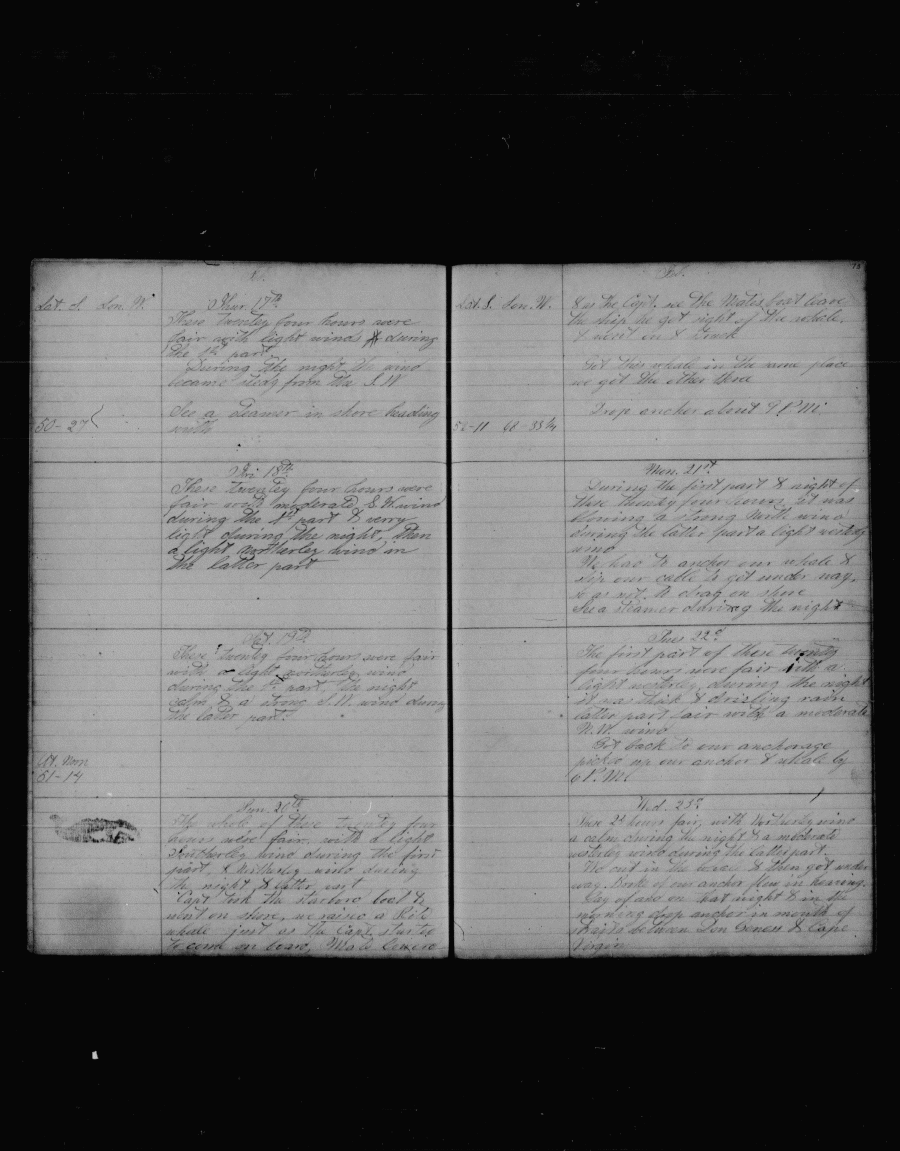 Lat. S. Lon. W.
Thur. 17th
These twenty four hours were
fair with light winds during
the 1st part
During the night the wind
became stedy from the S.W
See a steamer in shore heading
south
50-27
Fri 18th
These twenty four hours were
fair with moderate S.W. wind
during the 1st part & verry
light during the night. Then
a light northerley wind in
the latter part
Sat. 19th
These twenty four hours were fair
with a light northerley wind
during the 1st part, the night
calm & a strong S.W. wind during
the latter part.
At. Noon
51-14
Sun. 20th
The whole of these twenty four
hours were fair, with a light
Southerley wind during the first
part, & northerley wind during
the night & latter part
Capt took the starbord boat &
went on shore, we raised a Rite
whale just as the Capt. started
to come on board, Mate lowered
Feb.
73
Lat. S. Lon. W.
& as the Capt. see the Mates boat leave
the ship he got sight of the whale,
& went on & struck
Got this whale in the same place
we got the other three
Drop anchor about 9 P.M.
68-33¼
Mon. 21st
During the first part & night of
these twenty four hours it was
blowing a strong North wind
during the latter part a light westerley
wind
We had to anchor our whale &
slip our cable to get under way,
so as not to drag on shore
See a steamer during the night
Tues 22d
The first part of these twenty
four hours were fair with a
light westerley, during the night
it was thick & drizling rain
latter part fair with a moderate
N.W. wind
Got back to our anchorage
picked up our anchor & whale by
6 P.M.
Wed. 23d
These 24 hours fair, with Northerley wind
a calm during the night & a moderate
westerley wind during the latter part.
We cut in the whale & then got under
way. Broke of our anchor flew in heaving.
Lay of and on that night & in the
morning drop anchor in mouth of
straids between Don Geness & Cape
Virgin